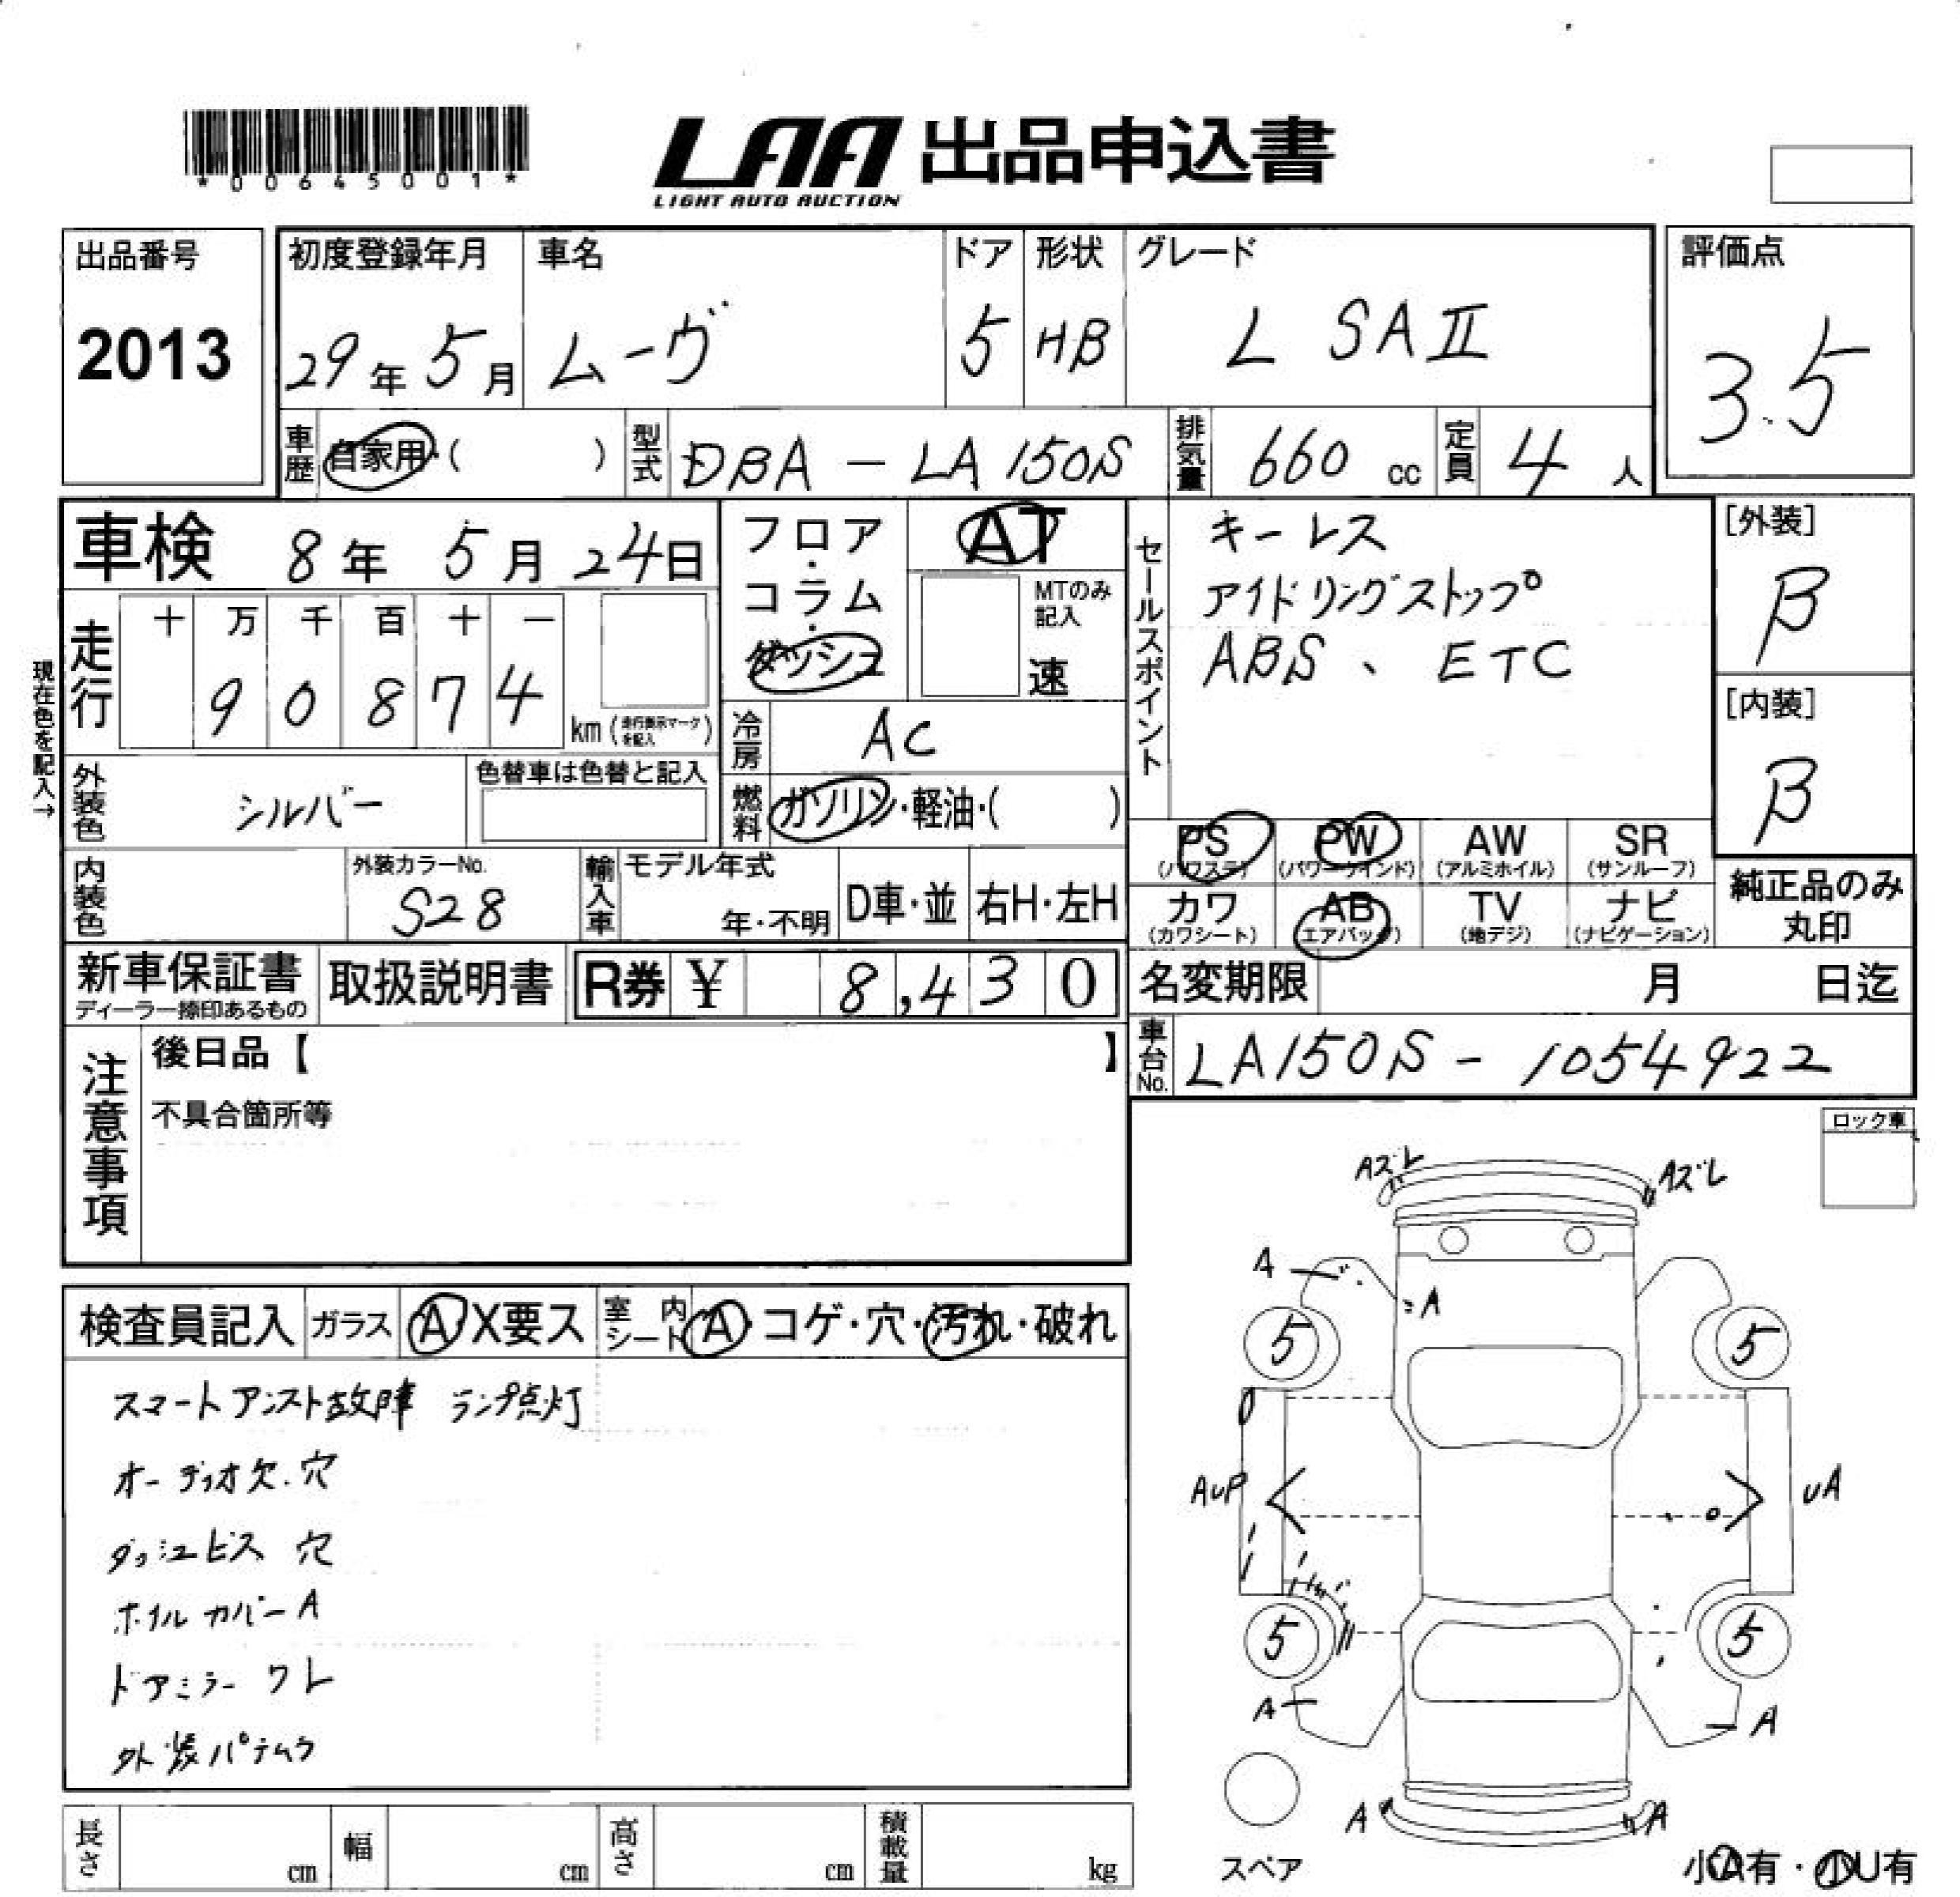 *00645001*
LAA 出品申込書
LIGHT AUTO AUCTION
出品番号
2013
初度登録年月
29年 5月
車名
ムーヴ
ドア
5
形状
HB
グレード
L SAⅡ
評価点
3.5
車歴 自家用・( )
型式 DBA - LA150S
排気量 660 cc
定員 4 人
車検 8年 5月 24日
フロア・コラム・ダッシュ
AT
MTのみ記入
速
セールスポイント
キーレス
アイドリングストップ
ABS、ETC
[外装]
B
[内装]
B
現在色を記入→
走行
十 万 千 百 十 一
9 0 8 7 4
km (走行表示マークを記入)
冷房 AC
外装色 シルバー
色替車は色替と記入
燃料 ガソリン・軽油・( )
PS (パワステ)
PW (パワーウインド)
AW (アルミホイル)
SR (サンルーフ)
内装色
外装カラーNo.
S28
輸入車
モデル年式
年・不明
D車・並
右H・左H
カワ (カワシート)
AB (エアバッグ)
TV (地デジ)
ナビ (ナビゲーション)
純正品のみ丸印
新車保証書
ディーラー捺印あるもの
取扱説明書
R券 ¥ 8,430
名変期限 月 日迄
注意事項
後日品【 】
不具合箇所等
車台No. LA150S - 1054922
ロック車
検査員記入
ガラス A・X要ス
室内シート A・コゲ・穴・汚れ・破れ
スマートアシスト故障 ランプ点灯
オーディオ欠.穴
ダッシュビス 穴
ホイルカバーA
ドアミラー ワレ
外装パテムラ
Aズレ Aズレ
A
A
5 5
AUP UA
5 5
A A
A A
スペア
小A有・小U有
長さ cm
幅 cm
高さ cm
積載量 kg